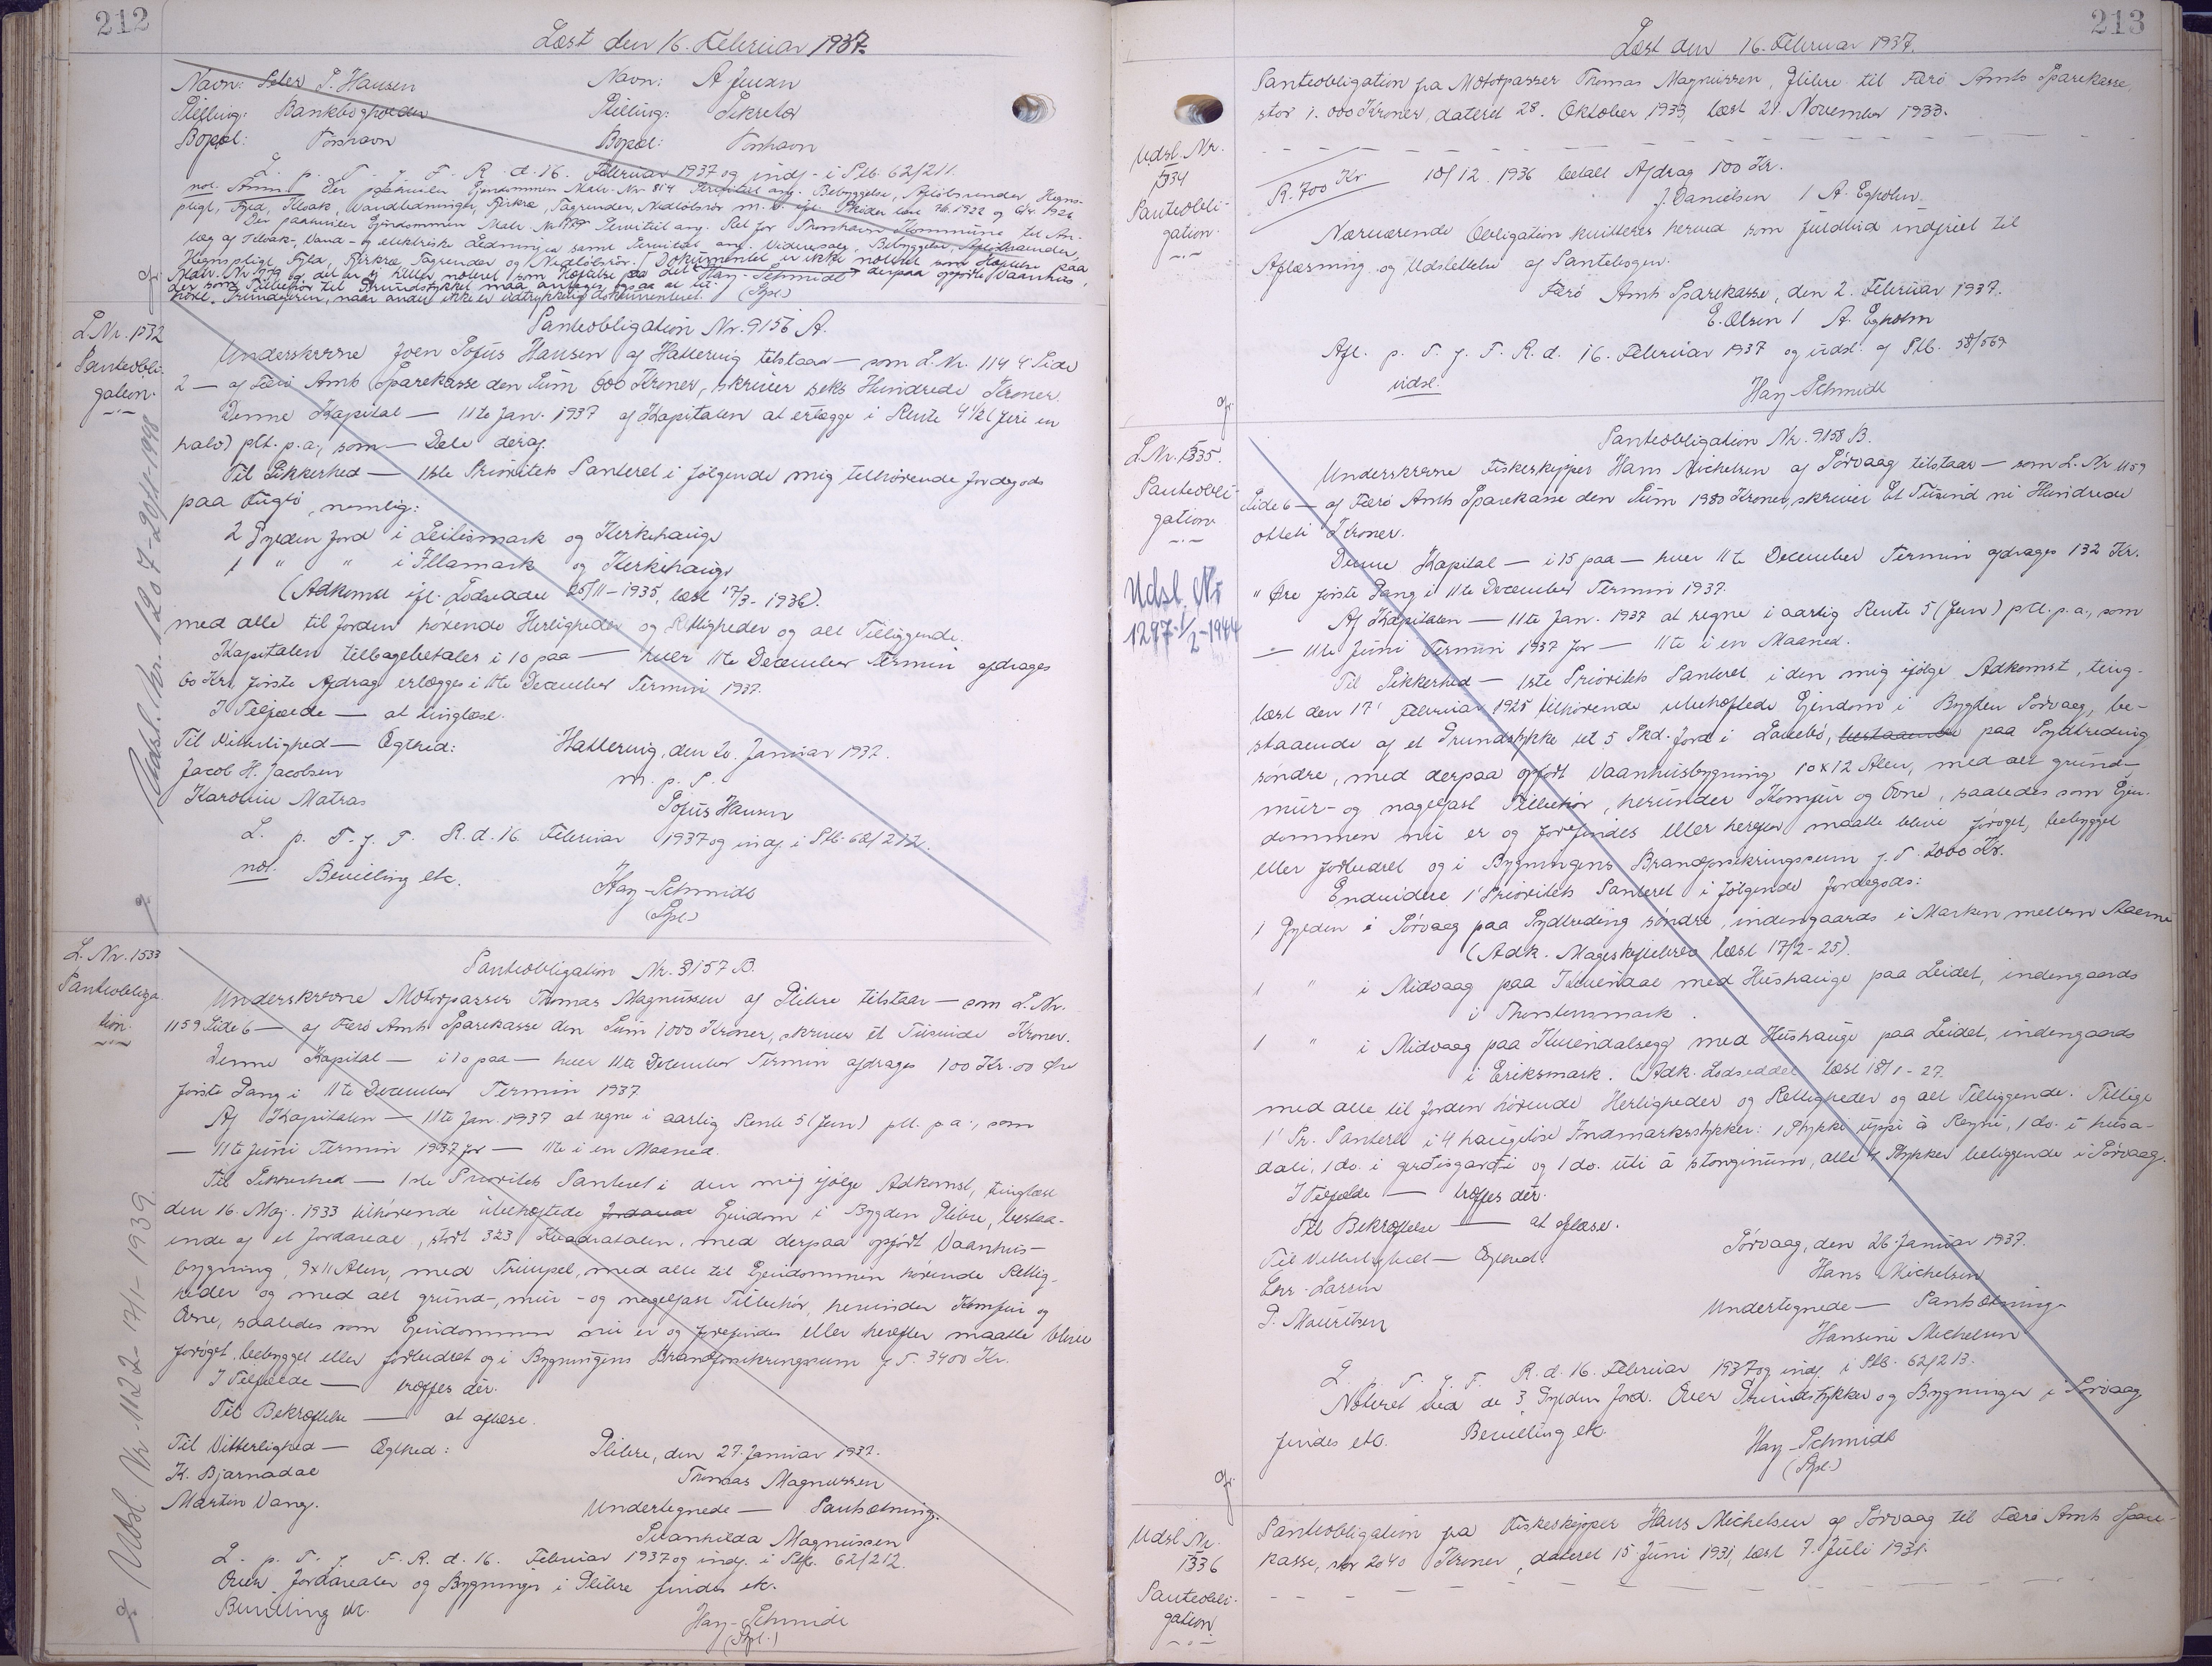 212
Læst den 16. Februar 1937.
Navn: Peter P. Hansen Navn: A Jensen
Stilling: Bankbogholder Stilling: Sekretær
Bopæl: Torshavn Bopæl: Torshavn
L. p. T. f. F. R. d. 16. Februar 1937 og indf. i Ptb. 62/211.
not. Anm: Der paahviler Ejendommen Matr. Nr. 814 Servitut ang. Bebyggelse, Afløbsrender, Hegns-
pligt, Fyld, Kloak, Vandledninger, Tagrender, Nedløbsrør m.v.
Der paahviler Ejendommen Matr. Nr. Servitut ang. Ret for Thorshavn Kommune til An-
læg af Kloak-, Vand- og elektriske Ledninger samt Servitut ang. Videresalg, Bebyggelse, Afløbsrender,
Hegnspligt, Fyld, Tagrender og Nedløbsrør. Dokumentet er ikke noteret som Hæftelse paa
Matr. Nr. 779 og det er ej heller noteret som Hæftelse paa det derpaa opførte Vaanhus,
der som Tilbehør til Grundstykket maa antages ogsaa at til- Hay-Schmidt
høre Grundejeren, naar andet ikke er udtrykkelig dokumenteret. (Spl.)
L.Nr. 1532
Panteobli-
gation.
Panteobligation Nr. 9156 A.
Underskrevne Joen Sofus Hansen af Hattervig tilstaar — som L.Nr. 1144 Side
2 — af Færø Amts Sparekasse den Sum 600 Kroner, skriver seks Hundrede Kroner.
Denne Kapital — 11te Jan. 1937 af Kapitalen at erlægge i Rente 4½ (fire en
halv) pCt. p.a., som — Dele deraf.
Til Sikkerhed — 1ste Prioritets Panteret i følgende mig tilhørende Jordegods
paa Fuglø, nemlig:
2 Gylden Jord i Leitismark og Kirkehauge
1 " " i Illamark og Kirkehauge
(Adkomst ifl. Lodseddel 25/11-1935, læst 17/3-1936).
med alle til Jorden hørende Herligheder og Rettigheder og alt Tilliggende.
Kapitalen tilbagebetales i 10 paa — hver 11te December Termin afdrages
60 Kr., første Afdrag erlægges i 11te December Termin 1937.
I Tilfælde — at tinglæse.
Til Vitterlighed — Ægthed: Hattervig, den 20. Januar 1937.
Jacob H. Jacobsen m. p. P.
Karoline Matras Sofus Hansen
L. p. T. f. F. R. d. 16. Februar 1937 og indf. i Ptb. 62/212.
not. Bevilling etc. Hay-Schmidt
(Spl.)
Udsl. Nr. 1207-20/4-1948
L. Nr. 1533
Panteobliga-
tion.
Panteobligation Nr. 9157 B.
Underskrevne Motorpasser Thomas Magnussen af Glibre tilstaar — som L.Nr.
1159 Side 6 — af Færø Amts Sparekasse den Sum 1000 Kroner, skriver et Tusinde Kroner.
Denne Kapital — i 10 paa — hver 11te December Termin afdrages 100 Kr. 00 Øre
første Gang i 11te December Termin 1937.
Af Kapitalen — 11te Jan. 1937 at regne i aarlig Rente 5 (fem) pCt. p.a., som
— 11te Juni Termin 1937 for — 11te i en Maaned.
Til Sikkerhed — 1ste Prioritets Panteret i den mig ifølge Adkomst, tinglæst
den 16. Maj 1933 tilhørende ubehæftede Ejendom i Bygden Glibre, bestaa-
ende af et Jordareal, stort 323 Kvadratalen, med derpaa opført Vaanhus-
bygning, 9x11 Alen, med Trimpel, med alle til Ejendommen hørende Rettig-
heder og med alt grund-, mur- og nagelfast Tilbehør, herunder Komfur og
Ovne, saaledes som Ejendommen nu er og forefindes eller herefter maatte blive
forøget, bebygget eller forbedret og i Bygningens Brandforsikringssum f. T. 3400 Kr.
I Tilfælde — træffes dér.
Til Bekræftelse — at aflæse.
Til Vitterlighed — Ægthed: Glibre, den 27. Januar 1937.
K. Bjarnadal Thomas Magnussen
Martin Vang. Undertegnede — Pantsætning.
Svanhilda Magnussen
L. p. T. f. F. R. d. 16. Februar 1937 og indf. i Ptb. 62/212.
Over Jordarealer og Bygninger i Glibre findes etc.
Bevilling etc. Hay-Schmidt
(Spl.)
Udsl. Nr. 1122-17/1-1939
213
Læst den 16. Februar 1937.
Udsl. Nr.
1534
Panteobli-
gation.
Panteobligation fra Motorpasser Thomas Magnussen, Glibre til Færø Amts Sparekasse,
stor 1.000 Kroner, dateret 28. Oktober 1933, læst 21. November 1933.
R. 700 Kr. 10/12 1936 betalt Afdrag 100 Kr.
J. Danielsen / A. Egholm
Nærværende Obligation kvitteres herved som fuldtud indfriet til
Aflæsning og Udslettelse af Pantebogen.
Færø Amts Sparekasse, den 2. Februar 1937.
E. Olsen / A. Egholm
Afl. p. T. f. F. R. d. 16. Februar 1937 og udsl. af Ptb. 58/569
udsl. Hay-Schmidt
L.Nr. 1535.
Panteobli-
gation
Udsl. Nr
1297-1/2-1944
Panteobligation Nr. 9158 B.
Underskrevne Fiskeskipper Hans Michelsen af Sørvaag tilstaar — som L. Nr 1159
Side 6 — af Færø Amts Sparekasse den Sum 1980 Kroner, skriver Et Tusind ni Hundrede
otteti Kroner.
Denne Kapital — i 15 paa — hver 11te December Termin afdrages 132 Kr.
" Øre første Gang i 11te December Termin 1937.
Af Kapitalen — 11te Jan. 1937 at regne i aarlig Rente 5 (fem) pCt. p.a., som
— 11te Juni Termin 1937 for — 11te i en Maaned.
Til Sikkerhed — 1ste Prioritets Panteret i den mig ifølge Adkomst, ting-
læst den 17' Februar 1925 tilhørende ubehæftede Ejendom i Bygden Sørvaag, be-
staaende af et Grundstykke ut 5 Skd. Jord iЛадебø, bestaaende paa Sydtreding
søndre, med derpaa opført Vaanhusbygning, 10x12 Alen, med alt grund-
mur- og nagelfast Tilbehør, herunder Komfur og Ovne, saaledes som Ejen-
dommen nu er og forefindes eller herefter maatte blive forøget, bebygget
eller forbedret og i Bygningens Brandforsikringssum f. T. 2000 Kr.
Endvidere 1' Prioritets Panteret i følgende Jordegods:
1 Gylden i Sørvaag paa Sydtreding søndre, indengaards i Marken mellem Aaerne
(Adk. Mageskiftebrev læst 17/2-25).
1 " i Midvaag paa Kvendal med Hushauge paa Leidet, indengaards
i Thorsteinsmark.
1 " i Midvaag paa Kvendalsegg med Hushauge paa Leidet, indengaards
i Eriksmark. (Adk. Lodseddel læst 18/1-27.
med alle til Jorden hørende Herligheder og Rettigheder og alt Tilliggende. Tillige
1' Pr. Panteret i 4 haugeløse Indmarksstykker: 1 Stykke uppi á Reyni, 1 do. í húsa-
dali, 1 do. i gerðisgarði og 1 do. úti á stonginum, alle 4 Stykker beliggende i Sørvaag.
I Tilfælde — træffes dér.
Til Bekræftelse — at aflæse.
Til Vitterlighed — Ægthed: Sørvaag, den 26. Januar 1937.
Chr. Larsen Hans Michelsen
P. Mouritsen Undertegnede — Pantsætning
Hansine Michelsen
L. p. T. f. F. R. d. 16. Februar 1937 og indf. i Ptb. 62/213.
Noteret ved de 3 Gylden Jord. Over Grundstykker og Bygninger i Sørvaag
findes etc. Bevilling etc. Hay-Schmidt
(Spl.)
Udsl. Nr.
1536
Panteobli-
gation
Panteobligation fra Fiskeskipper Hans Michelsen af Sørvaag til Færø Amts Spare-
kasse, stor 2040 Kroner, dateret 15 Juni 1931, læst 7. Juli 1931.